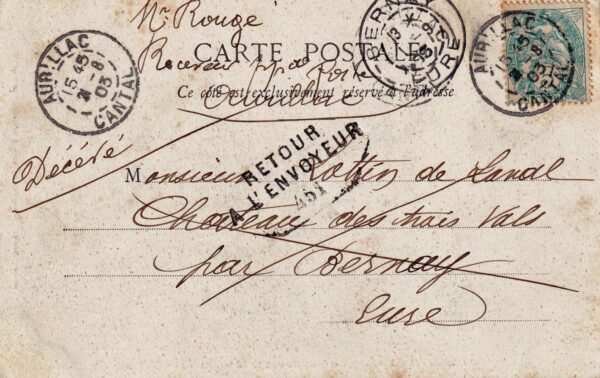 Mr Rougé
Receveur
CARTE POSTALE
Ce côté est exclusivement réservé à l'adresse
Aurillac
AURILLAC
15 45
21 -8
03
CANTAL
BERNAY
EURE
AURILLAC
15 45
21 -8
03
CANTAL
Décédé
RETOUR
A L'ENVOYEUR
451
Monsieur Lottin de Laval
Chateau des trois Vals
par Bernay
Eure